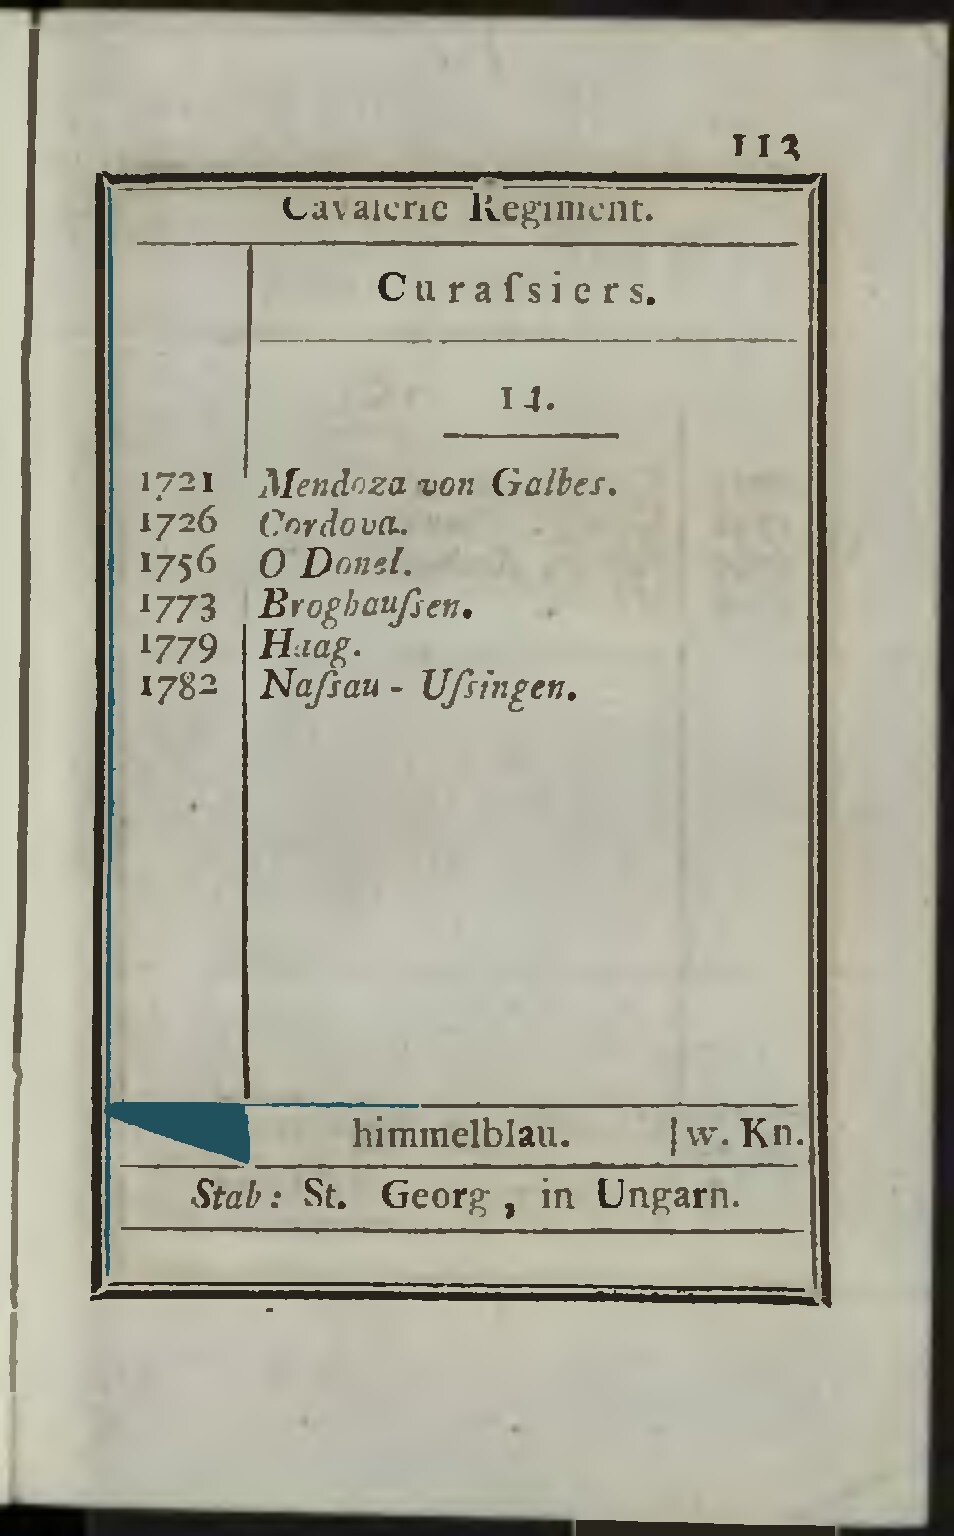 113
Cavalerie Regiment.
Curaſsiers.
14.
1721 Mendoza von Galbes.
1726 Cordova.
1756 O Donel.
1773 Broghauſsen.
1779 Haag.
1782 Naſsau - Uſsingen.
himmelblau. | w. Kn.
Stab: St. Georg, in Ungarn.